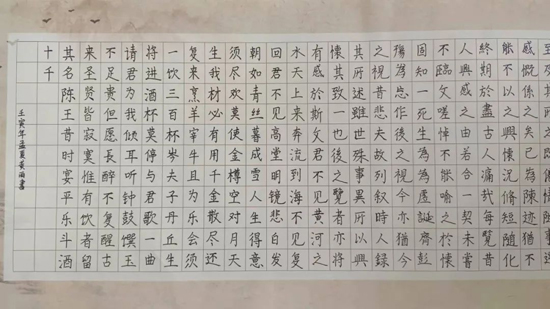 感慨係之矣已為陳迹猶不
能不以之興懷況脩短隨化
終期於盡古人痛哉每覽昔
人興感之由若合一契未嘗
不臨文嗟悼不能喻之於懷
固知一死生為虛誕齊彭
殤為妄作後之視今亦猶今
之視昔悲夫故列叙時人録
其所述雖世殊事異所以興
懷其致一也後之覽者亦將
有感於斯文君不见黄河之
水天上来奔流到海不复
回君不见高堂明镜悲白发
朝如青丝暮成雪人生得意
须尽欢莫使金樽空对月天
生我材必有用千金散尽还
复来烹羊宰牛且为乐会须
一饮三百杯岑夫子丹丘生
将进酒杯莫停与君歌一曲
请君为我倾耳听钟鼓馔玉
不足贵但愿长醉不复醒古
来圣贤皆寂寞惟有饮者留
其名陈王昔时宴平乐斗酒
十千
壬寅年孟夏黄書